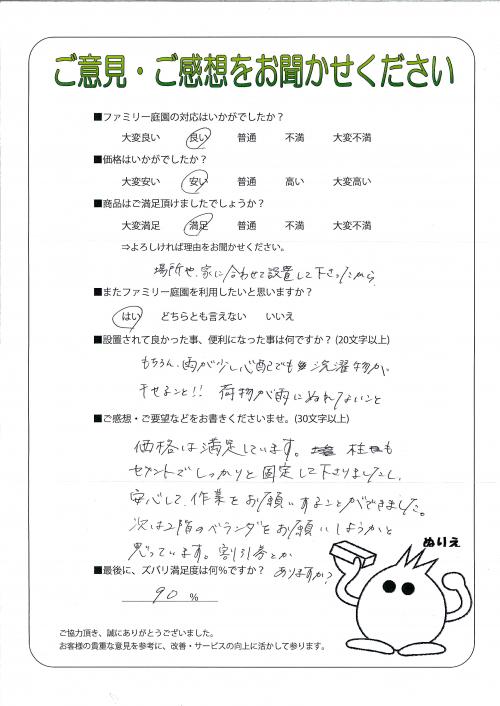 ご意見・ご感想をお聞かせください
■ファミリー庭園の対応はいかがでしたか？
大変良い 良い 普通 不満 大変不満
■価格はいかがでしたか？
大変安い 安い 普通 高い 大変高い
■商品はご満足頂けましたでしょうか？
大変満足 満足 普通 不満 大変不満
⇒よろしければ理由をお聞かせください。
場所や、家に合わせて設置して下さったから
■またファミリー庭園を利用したいと思いますか？
はい どちらとも言えない いいえ
■設置されて良かった事、便利になった事は何ですか？(20文字以上)
もちろん、雨が少し心配でも洗濯物が、
干せること!! 荷物が雨にぬれてないこと
■ご感想・ご要望などをお書きくださいませ。(30文字以上)
価格は満足しています。柱も
セメントでしっかりと固定して下さりましたし、
安心して、作業をお願いすることができました。
次は2階のベランダをお願いしようかと
思っています。割引券とか
ありますか？
■最後に、ズバリ満足度は何％ですか？
90 %
ぬりえ
ご協力頂き、誠にありがとうございました。
お客様の貴重な意見を参考に、改善・サービスの向上に活かして参ります。